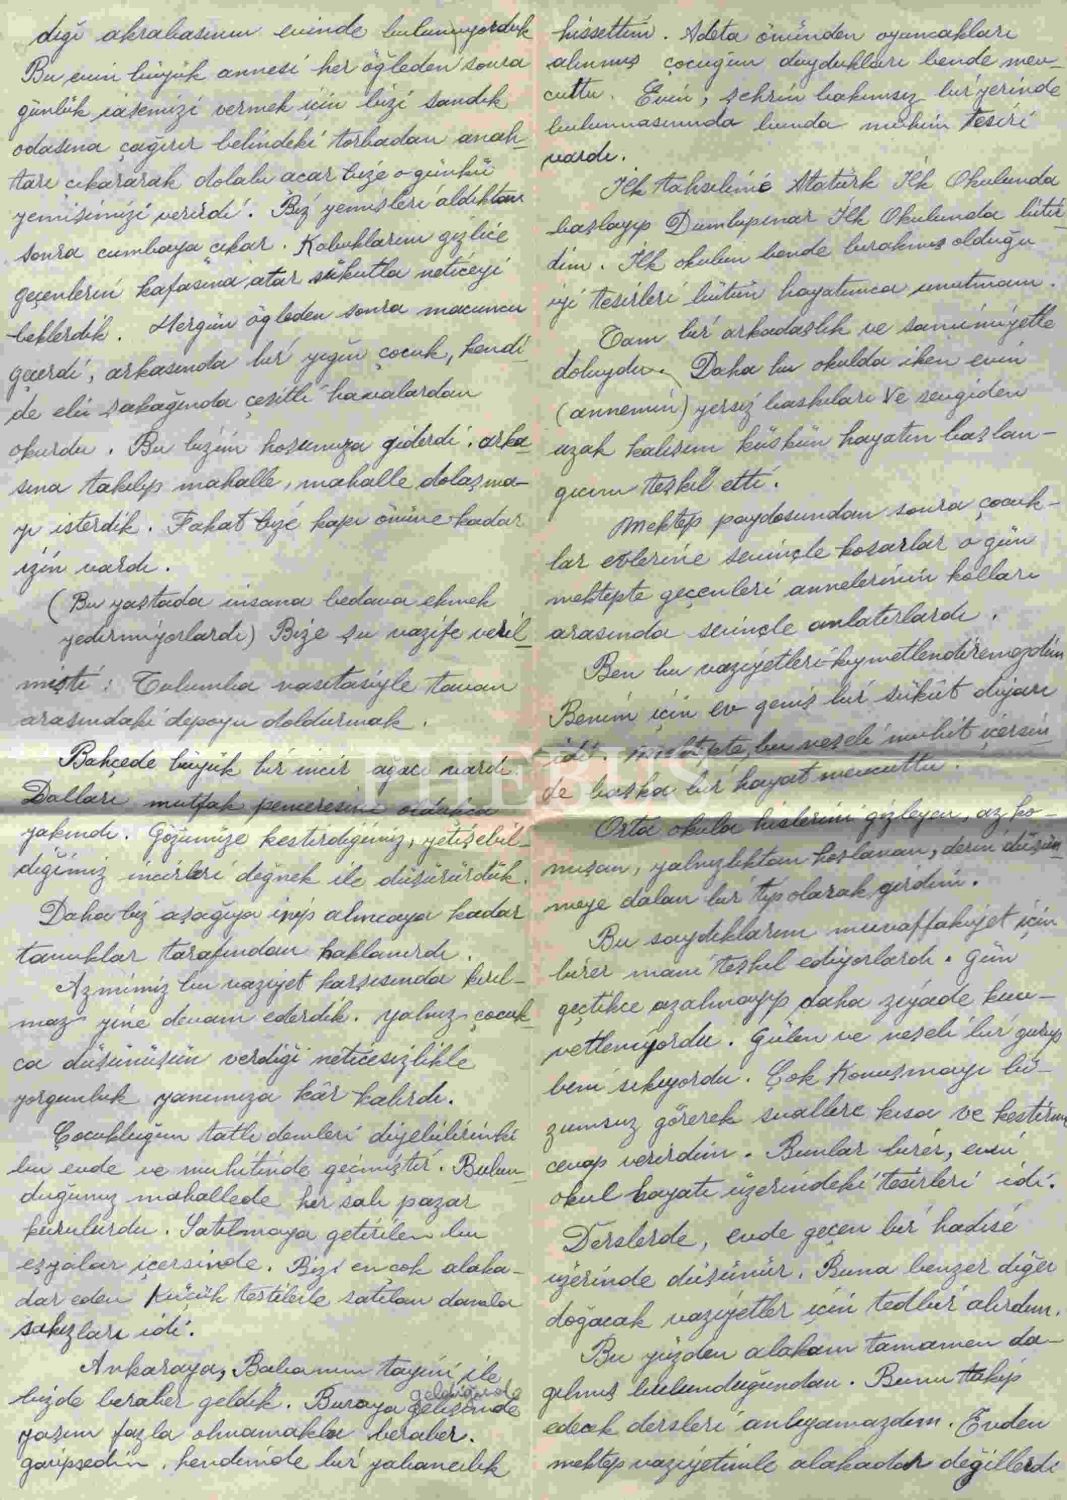 diği akrabasının evinde bulunuyorduk
Bu evin büyük annesi her öğleden sonra
günlük iaşemizi vermek için bizi sandık
odasına çağırır belindeki torbadan anah-
tarı çıkararak dolabı açar bize o günkü
yemişimizi verirdi. Biz yemişleri aldıktan
sonra cumbaya çıkar. Kabuklarını gizlice
geçenlerin kafasına atar sükutla neticeyi
beklerdik. Hergün öğleden sonra macuncu
geçerdi, arkasında bir yığın çocuk, kendi
de eli şakağında çeşitli havalardan
okurdu. Bu bizim hoşumuza giderdi. arka-
sına takılıp mahalle, mahalle dolaşma-
yı isterdik. Fakat bize kapı önüne kadar
izin vardı.
(Bu yaştada insana bedava ekmek
yedirmiyorlardı) Bize şu vazife veril-
mişti: Tulumba vasıtasiyle tavan
arasındaki depoyu doldurmak.
Bahçede büyük bir incir ağacı vardı.
Dalları mutfak penceresine oldukça
yakındı. Gözümüze kestirdiğimiz, yetişebil-
diğimiz incirleri değnek ile düşürürdük.
Daha biz aşağıya inip alıncaya kadar
tavuklar tarafından haklanırdı.
Azmimiz bu vaziyet karşısında kırıl-
maz yine devam ederdik. yalnız çocuk-
ca düşünüşün verdiği neticesizlikle
yorgunluk yanımıza kâr kalırdı.
Çocukluğun tatlı demleri diyebilirimki
bu evde ve muhitinde geçmiştir. Bulun-
duğumuz mahallede her salı pazar
kurulurdu. Satılmaya getirilen bu
eşyalar içersinde. Bizi en çok alaka-
dar eden küçük testilerle satılan damla
sakızları idi.
Ankaraya, Babamın tayini ile
bizde beraber geldik. Buraya gelişimde
geldiğimde
yaşım fazla olmamakla beraber.
garipsedim, kendimde bir yabancılık
hissettim. Adeta önünden oyuncakları
alınmış çocuğun duydukları bende mev-
cuttu. Evin, şehrin bakımsız bir yerinde
bulunmasınında bunda mühim tesiri
vardı.
İlk tahsilimi Atatürk İlk Okulunda
başlayıp Dumlupınar İlk Okulunda bitir-
dim. İlk okulun bende bırakmış olduğu
iyi tesirleri bütün hayatımca unutmam.
Tam bir arkadaşlık ve samimiyetle
doluydu. Daha bu okulda iken evin
(annemin) yersiz baskıları ve sevgiden
uzak kalışım küskün hayatın başlan-
gıcını teşkil etti.
Mektep paydosundan sonra çocuk-
lar evlerine sevinçle koşarlar o gün
mektepte geçenleri annelerinin kolları
arasında sevinçle anlatırlardı.
Ben bu vaziyetleri kıymetlendiremezdim
Benim için ev geniş bir sükût diyarı
idi. Mektepte, bu neşeli muhit içersin-
de başka bir hayat mevcuttu.
Orta okula hislerini gizleyen, az ko-
nuşan, yalnızlıktan hoşlanan, derin düşün-
meye dalan bir tip olarak girdim.
Bu saydıklarım muvaffakiyet için
birer mani teşkil ediyorlardı. Gün
geçtikce azalmayıp daha ziyade kuv-
vetleniyordu. Gülen ve neşeli bir gurup
beni sıkıyordu. Çok konuşmayı lü-
zumsuz görerek suallere kısa ve kestirme
cevap verirdim. Bunlar birer, evin
okul hayatı üzerindeki tesirleri idi.
Derslerde, evde geçen bir hadise
üzerinde düşünür. Buna benzer diğer
doğacak vaziyetler için tedbir alırdım.
Bu yüzden alakam tamamen da-
ğılmış bulunduğundan. Bunu takip
edecek dersleri anlıyamazdım. Evden
mektep vaziyetimle alakadar değillerdi
PHEBUS